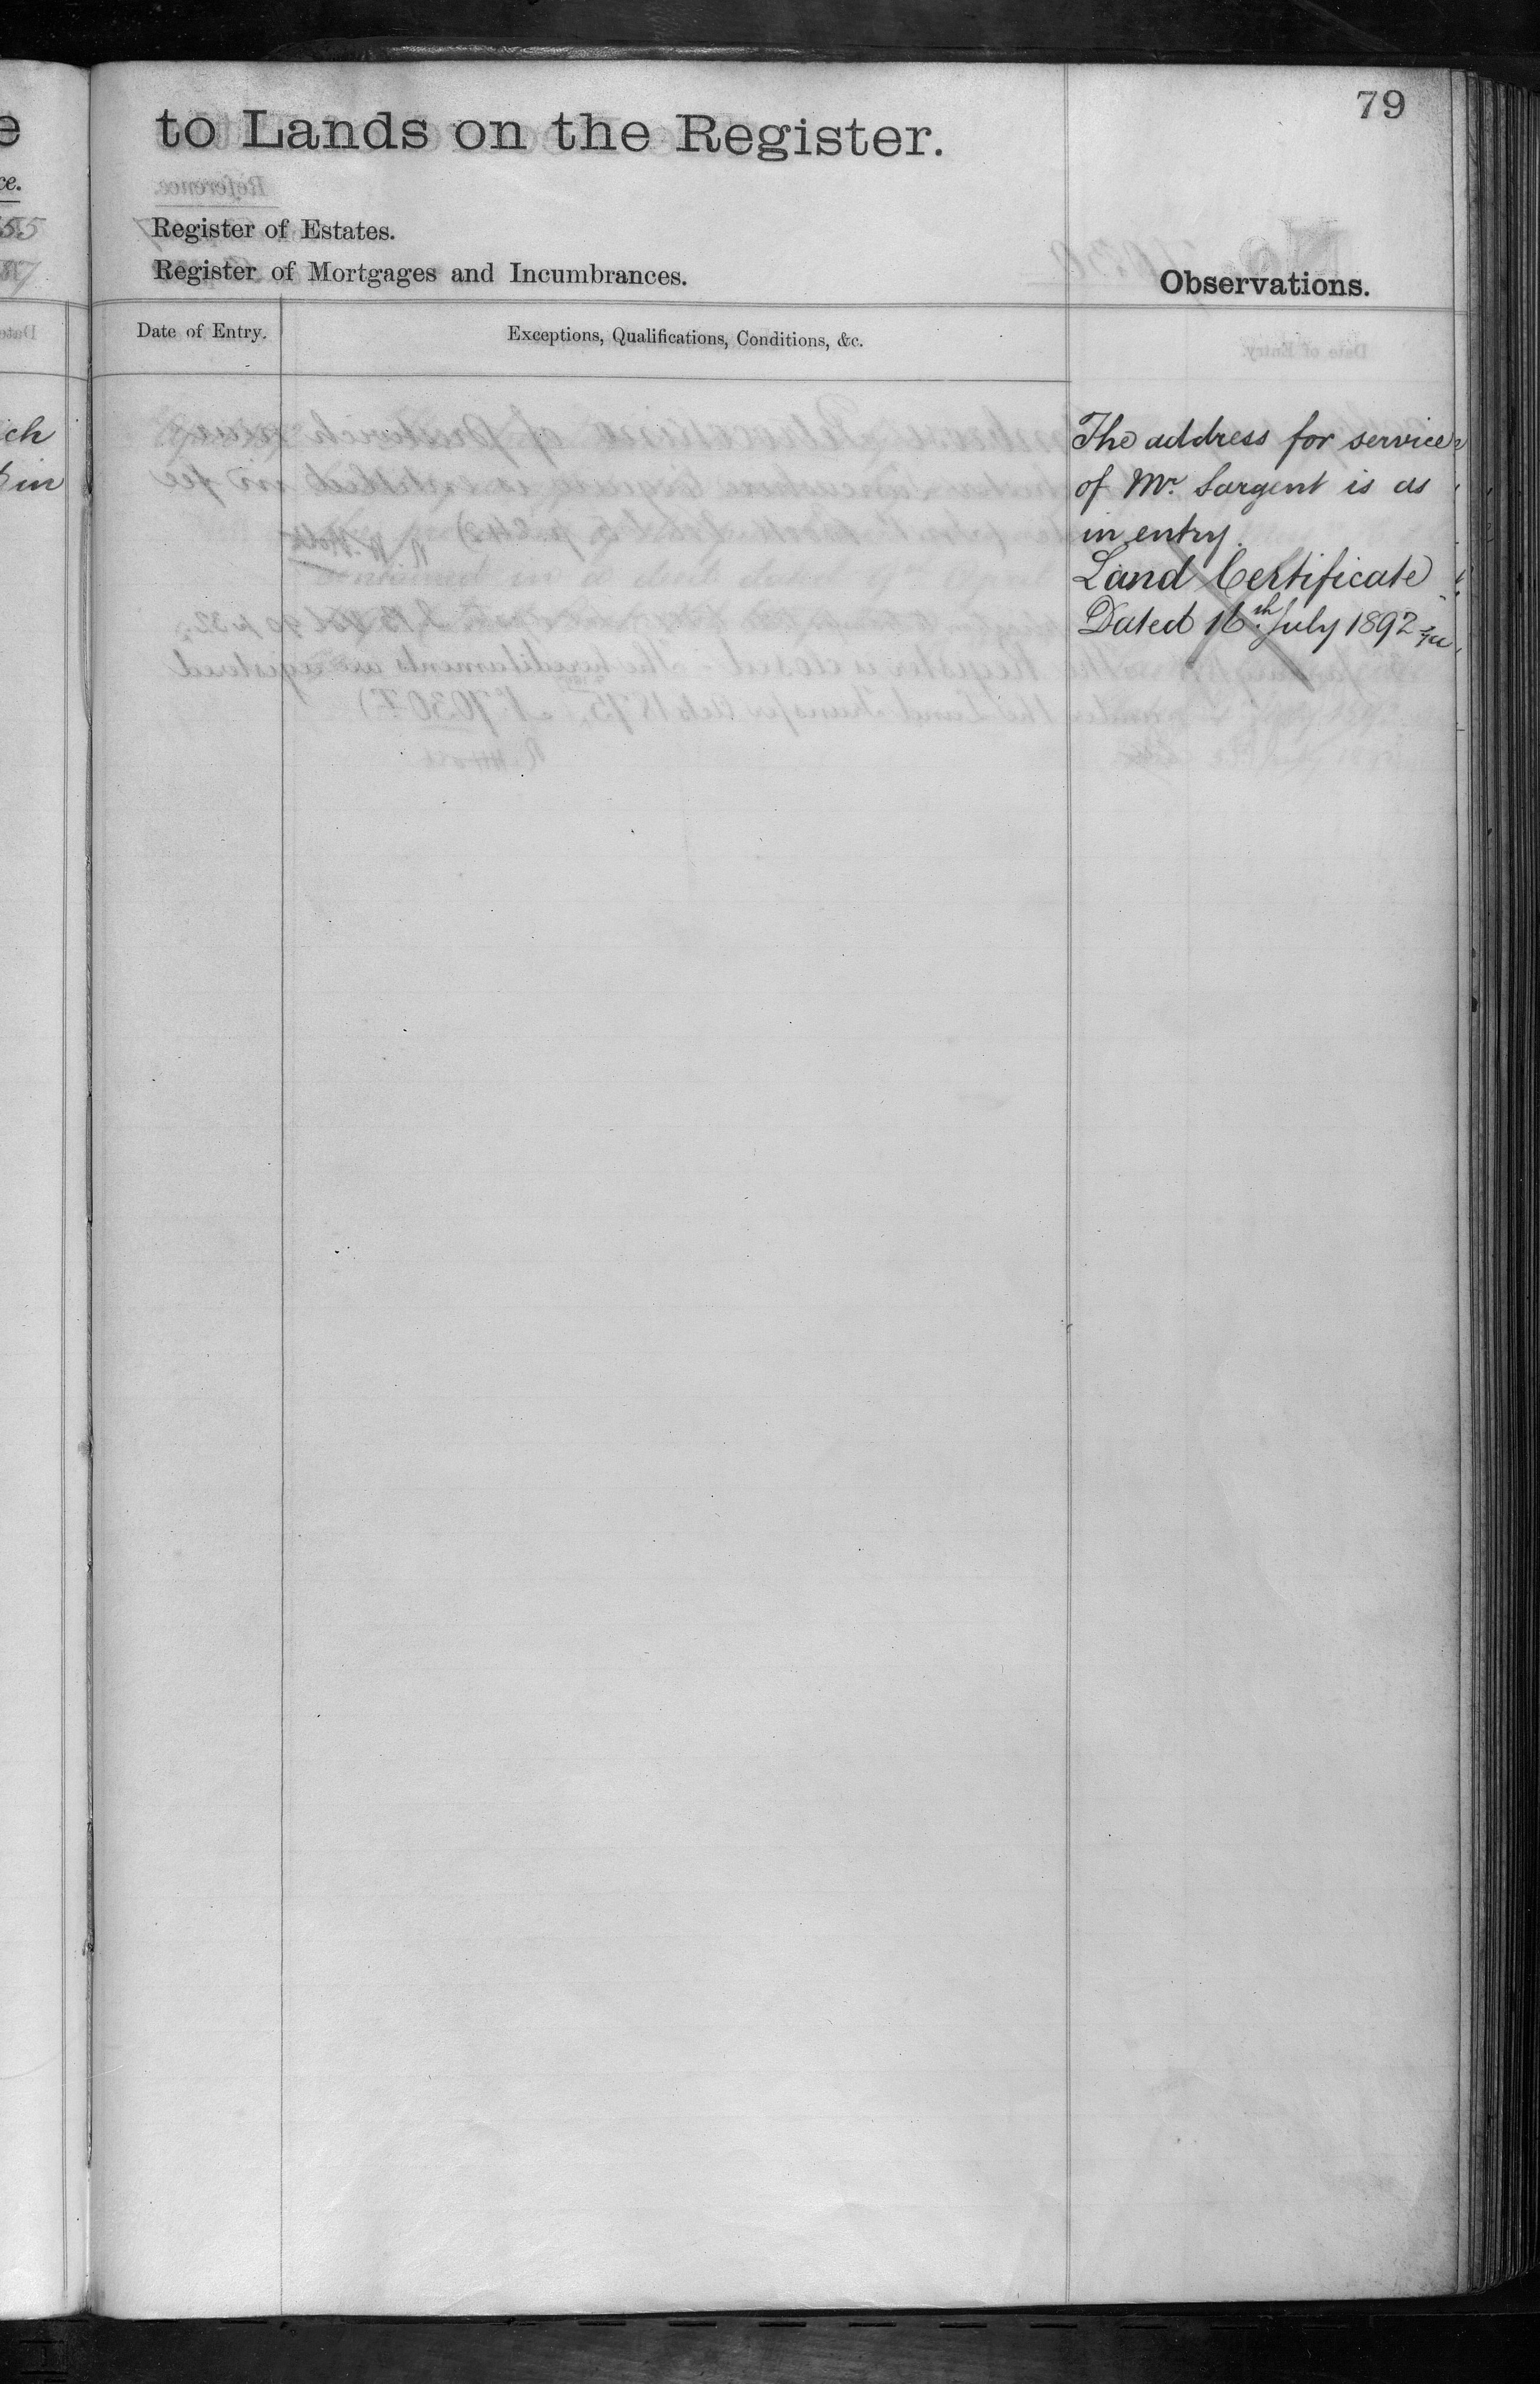 79
to Lands on the Register.
Register of Estates.
Register of Mortgages and Incumbrances.
Observations.
Date of Entry.
Exceptions, Qualifications, Conditions, &c.
The address for service
of Mr. Sargent is as
in entry.
Land Certificate
Dated 16th July 1892